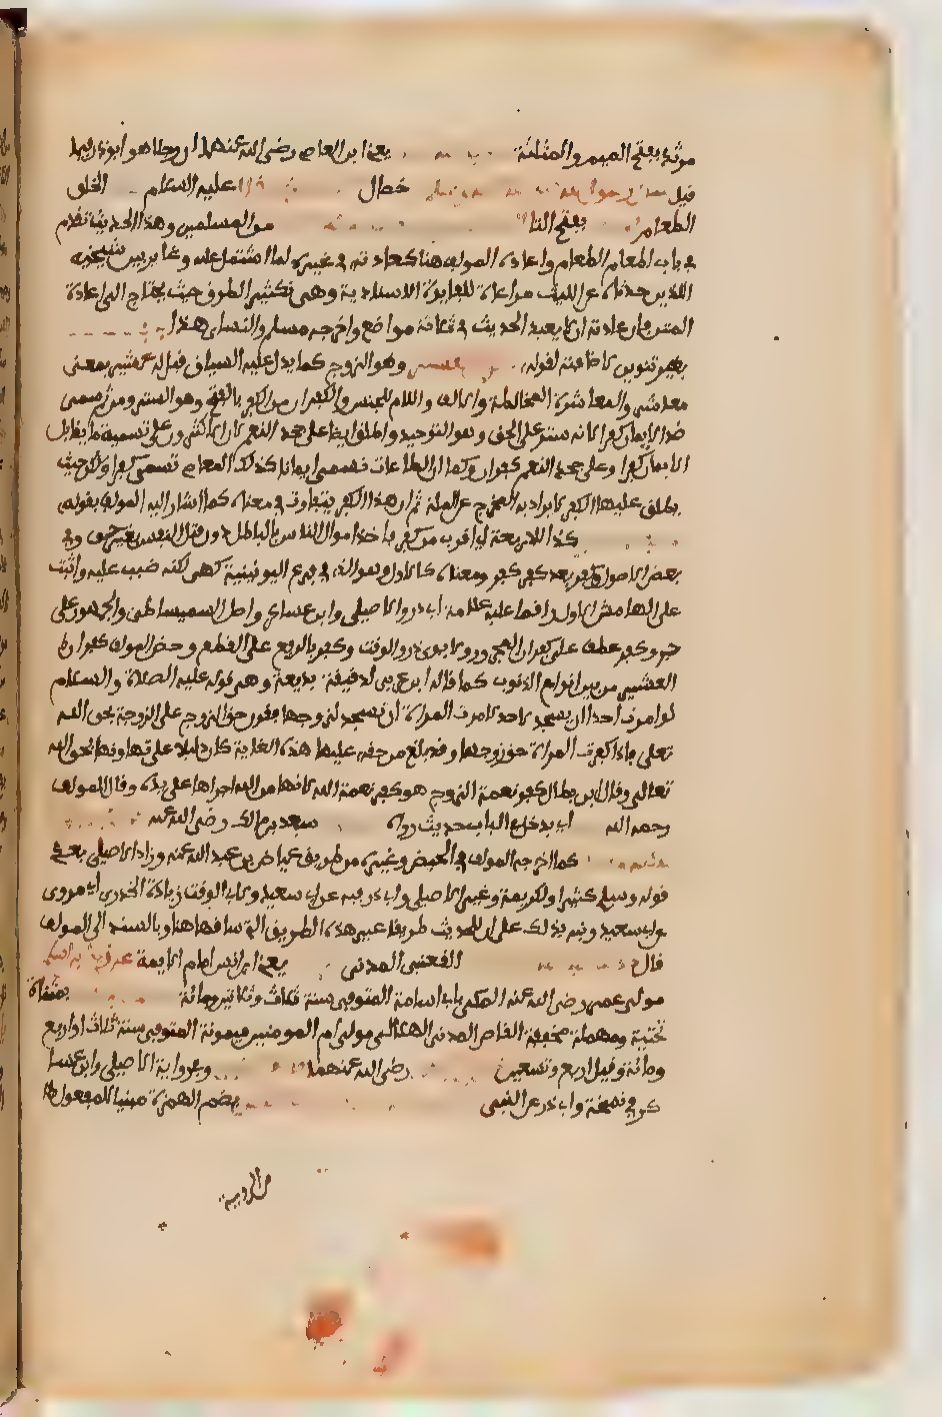 مرثد بفتح الميم والمثلثة يعنى ابن العاص رضى الله عنهما ان رجلا هو ابو ذر فيما
قيل خصال عليه السلام الخلق
الطعام بفتح التا من المسلمين وهذا الحديث تقدم
في باب اطعام الطعام واعاده المولف هنا كعادته في غيره لما اشتمل عليه وغاير بين شيخيه
اللذين حدثاه عن الليث مراعاة للفايدة الاسنادية وهى تكثير الطرق حيث يحتاج الى اعادة
المتن فان عادته ان لا يعيد الحديث في ثلاثة مواضع واخرجه مسلم والنساى هذا
بغير تنوين لاضافته لقوله وهو الزوج كما يدل عليه السياق قيل له عشير بمعنى
معاشر والمعاشرة المخالطة والالف واللام للجنس والكفران من الكفر بالفتح وهو الستر ومن ثم سمى
ضد الايمان كفرا لانه ستر على الحق وهو التوحيد واطلق ايضا على جحد النعم لان الاكثرون على تسمية ما يقابل
الايمان كفرا وعلى جحد النعم كفران وكما ان الطاعات تسمى ايمانا كذلك المعاصى تسمى كفرا ولكن حيث
يطلق عليها الكفر لا يراد به المخرج عن الملة ثم ان هذا الكفر يتفاوت في معناه كما اشار اليه المولف بقوله
كذا للاربعة اى اقرب من كفر باخذ اموال الناس بالباطل دون قتل النفس بغير حق وفي
بعض الاصول وكفر بعد كفر ومعناه كالاول وهو الذى في فرع اليونينية كهى لكنه ضبب عليه واثبت
على الهامش الاول راقما عليه علامة ابى ذر والاصيلى وابن عساكر واصل السميساطى والجمهور على
جر وكفر عطف على كفران المجرور ولابوى ذر والوقت وكفر بالرفع على القطع وخص المولف كفران
العشير من بين انواع الذنوب كما قاله ابن عربى لدقيقة بديعة وهى قوله عليه الصلاة والسلام
لو امرت احدا ان يسجد لاحد لامرت المراة ان تسجد لزوجها فقرن حق الزوج على الزوجة بحق الله
تعالى فاذا كفرت المراة حق زوجها وقد بلغ من حقه عليها هذه الغاية كان دليلا على تهاونها بحق الله
تعالى وقال ابن بطال كفر نعمة الزوج هو كفر نعمة الله لانها من الله اجراها على يده وقال المولف
رحمه الله اى يدخل في الباب حديث رواه سعد بن مالك رضى الله عنه
كما اخرجه المولف في الحيض وغيره من طريق عياض بن عبد الله عنه وزاد الاصيلى بعد
قوله وسلم كثيرا ولكريمة وغير الاصيلى وابى ذر فيه عن ابى سعيد ولابى الوقت زيادة الخدرى اى مروى
عن ابى سعيد ونبه بذلك على ان للحديث طريقا غير هذه الطريق التى ساقها هنا وبالسند الى المولف
قال القعنبى المدنى يعنى ابن انس امام الايمة
مولى عمر رضى الله عنه المكنى بابى اسامة المتوفى سنة ثلاث وثلاثين ومائة بمثناة
تحتية ومهملة مخففة القاص المدنى الهلالى مولى ام المومنين ميمونة المتوفى سنة ثلاث او اربع
ومائة وقيل اربع وتسعين رضى الله عنهما وفى رواية الاصيلى وابن عسا
كر في نسخة وابى ذر عن النبى بضم الهمزة مبنيا للمفعول
من الروية